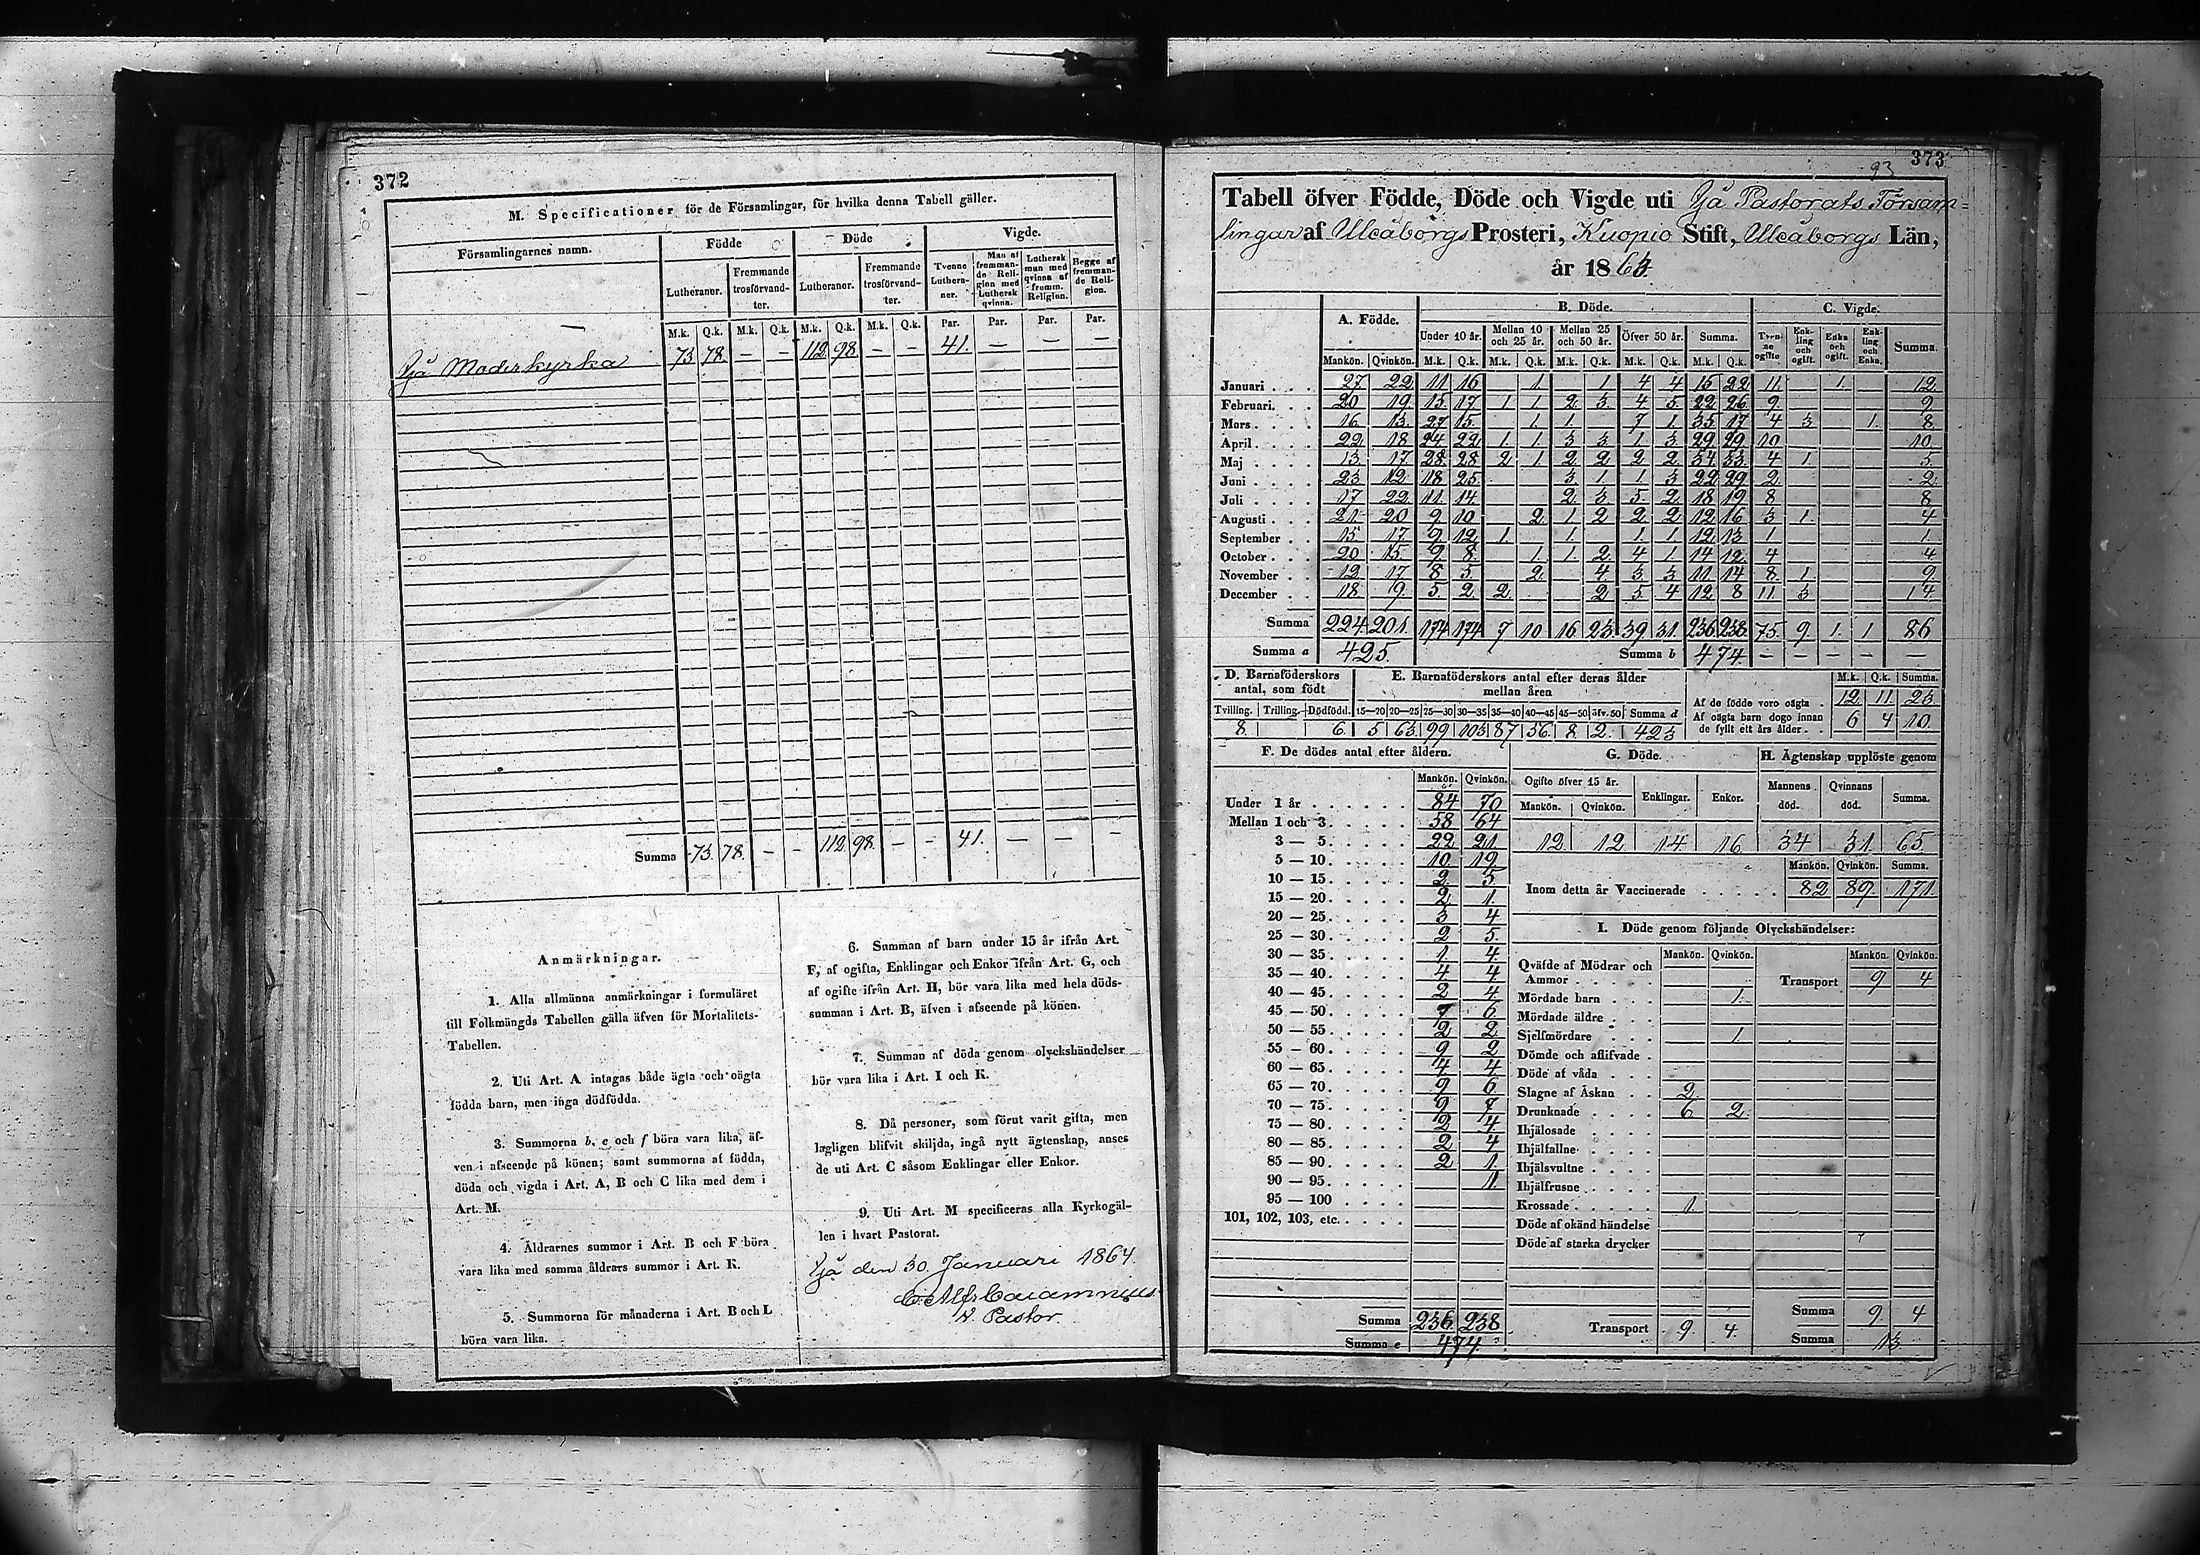 372
M. Specificationer för de Församlingar, för hvilka denna Tabell gäller.
Församlingarnes namn. Födde Döde Vigde.
Lutheraner. Fremmande trosförvandter. Lutheraner. Fremmande trosförvandter. Tvenne Lutheraner. Man af fremmande Religion med Luthersk qvinna. Luthersk man med qvinna af fremm. Religion. Begge af fremmande Religion.
M.k. Q.k. M.k. Q.k. M.k. Q.k. M.k. Q.k. Par. Par. Par. Par.
Ijå Moderkyrka 73 78. — — 112 98 — — 41. — — —
Summa 73. 78. — — 112 98. — — 41. — — —
Anmärkningar.
1. Alla allmänna anmärkningar i formuläret
till Folkmängds Tabellen gälla äfven för Mortalitets-
Tabellen.
2. Uti Art. A intagas både ägta och oägta
födda barn, men inga dödfödda.
3. Summorna b, e och f böra vara lika, äf-
ven i afseende på könen; samt summorna af födda,
döda och vigda i Art. A, B och C lika med dem i
Art. M.
4. Åldrarnes summor i Art. B och F böra
vara lika med samma åldrars summor i Art. K.
5. Summorna för månaderna i Art. B och L
böra vara lika.
6. Summan af barn under 15 år ifrån Art.
F, af ogifta, Enklingar och Enkor ifrån Art. G, och
af ogifte ifrån Art. H, bör vara lika med hela döds-
summan i Art. B, äfven i afseende på könen.
7. Summan af döda genom olyckshändelser
bör vara lika i Art. I och K.
8. Då personer, som förut varit gifta, men
lagligen blifvit skiljda, ingå nytt ägtenskap, anses
de uti Art. C såsom Enklingar eller Enkor.
9. Uti Art. M specificeras alla Kyrkogäl-
len i hvart Pastorat.
Ijå den 30. Januari 1864.
V. Pastor.
373
93
Tabell öfver Födde, Döde och Vigde uti Ijå Pastorats Försam=
lingar af Uleåborgs Prosteri, Kuopio Stift, Uleåborgs Län,
år 1863.
A. Födde. B. Döde. C. Vigde.
Under 10 år. Mellan 10 och 25 år. Mellan 25 och 50 år. Öfver 50 år. Summa. Tvenne ogifte Enkling och ogift. Enka och ogift. Enkling och Enka. Summa.
Mankön. Qvinkön. M.k. Q.k. M.k. Q.k. M.k. Q.k. M.k. Q.k. M.k. Q.k.
Januari . . . 27 22 11 16 1 1 4 4 15 22 11 1. 12
Februari. . . 20 19 15 17 1. 1. 2 3. 4 5. 22 26 9 9
Mars . . . . 16 13. 27 15. 1 1. 7 1. 35 17 4 3 1. 8
April . . . . 22 18 24 22 1 1 3 3 1 3 29 29 10 10
Maj . . . . 13. 17 28. 28 2 1. 2 2 2 2. 34 33. 4 1. 5.
Juni . . . . 23 12 18 25. 3 1 1 3 22 29 2 2
Juli . . . . 17 22 11 14 2 3. 5. 2 18 19 8 8
Augusti . . . 21. 20 9 10 2 1. 2 2 2 12 16 3 1. 4
September . . 15 17 9 12 1 1. 1 1 12 13 1 1
October . . . 20 15 9. 8 1 1. 2 4 1 14 12 4 4
November . . 12 17 8 5. 2. 4 3 3 11 14 8. 1 9
December . . 18 9 5. 2 2. 2 5 4 12 8 11 3 14
Summa 224 201. 174 174 7 10 16 23. 39 31. 236 238. 75. 9 1. 1 86
Summa a 425. Summa b 474. — — — — —
D. Barnaföderskors antal, som födt
Tvilling. Trilling. Dödfödd.
8 6.
E. Barnaföderskors antal efter deras ålder mellan åren
15—20 20—25 25—30 30—35 35—40 40—45 45—50 öfv. 50 Summa d
5 63. 99 103 87 56. 8 2. 423
M.k. Q.k. Summa.
Af de födde voro oägta . 12 11 23.
Af oägta barn dogo innan de fyllt ett års ålder . . 6 4 10.
F. De dödes antal efter åldern.
Mankön. Qvinkön.
Under 1 år . . . . . . 84 70
Mellan 1 och 3. . . . . 58 64
3 — 5. . . . . 22 21
5 — 10. . . . . 10 19
10 — 15. . . . . 2 5.
15 — 20. . . . . 2 1.
20 — 25. . . . . 3 4
25 — 30. . . . . 2 5.
30 — 35. . . . . 1. 4.
35 — 40. . . . . 4 4
40 — 45. . . . . 2 4
45 — 50. . . . . 7 6
50 — 55. . . . . 2 2
55 — 60. . . . . 9 2
60 — 65. . . . . 4 4
65 — 70. . . . . 9 6
70 — 75. . . . . 9 7
75 — 80. . . . . 2 4.
80 — 85. . . . . 2 4
85 — 90. . . . . 2 1.
90 — 95. . . . . 1.
95 — 100 . . . . .
101, 102, 103, etc. . . . .
Summa 236 238
Summa e 474
G. Döde.
Ogifte öfver 15 år. Enklingar. Enkor.
Mankön. Qvinkön.
12 12 14 16
H. Ägtenskap upplöste genom
Mannens död. Qvinnans död. Summa.
34 31. 65.
Mankön. Qvinkön. Summa.
Inom detta år Vaccinerade . . . . . 82 89. 171.
I. Döde genom följande Olyckshändelser:
Mankön. Qvinkön. Mankön. Qvinkön.
Qväfde af Mödrar och
Ammor . . . . Transport 9 4
Mördade barn . . . 1.
Mördade äldre . . .
Sjelfmördare . . . 1.
Dömde och aflifvade .
Döde af våda . . .
Slagne af Åskan . . 2.
Drunknade . . . . 6 2
Ihjälosade . . . .
Ihjälfallne . . . .
Ihjälsvultne . . . .
Ihjälfrusne . . . .
Krossade . . . . . 1.
Döde af okänd händelse
Döde af starka drycker
Transport 9 4. Summa 9. 4
Summa 13.